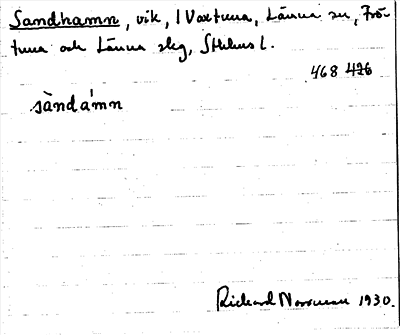 Sandhamn, vik, i Vaxtuna, Länna sn, Frö-
tuna och Länna slg, Sthlms l.
468 426
sàndámn
Richard Norrman 1930.